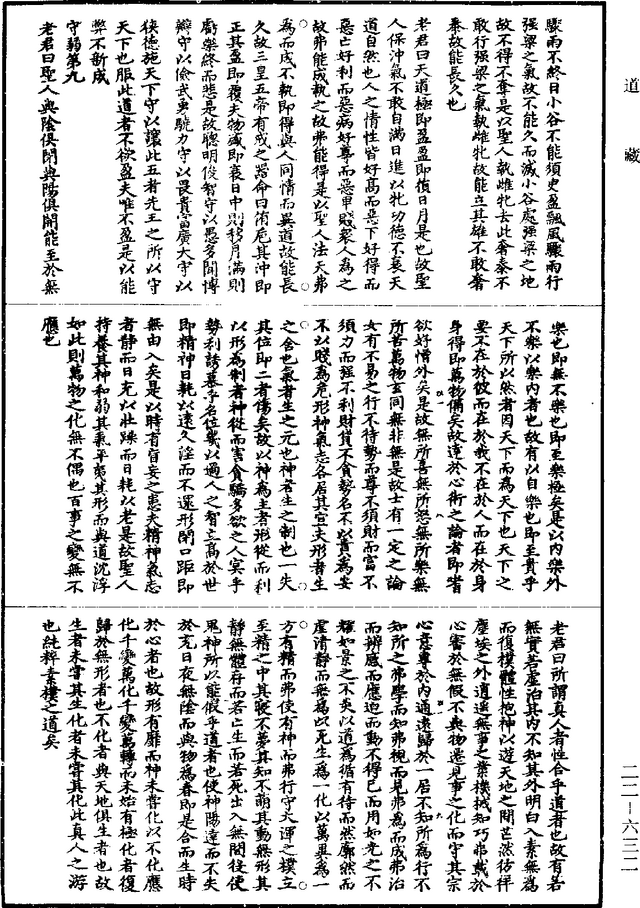 道藏
驟雨不終日小谷不能須臾盈飄風驟雨行
強梁之氣故不能久而滅小谷處強梁之地
故不得不奪是以聖人執雌牝去此奢泰不
敢行強梁之氣執雌牝故能立其雄不敢奢
泰故能長久也
老君曰天道極即盈盈即損日月是也故聖
人保沖氣不敢自滿日進以牝功德不衰天
道自然也人之情性皆好高而惡下好得而
惡亡好利而惡病好尊而惡卑賤衆人為之
故弗能成執之故弗能得是以聖人法天弗
為而成不執即得與人同情而異道故能長
久故三皇五帝有戒之器命曰侑卮其沖即
正其盈即覆夫物盛即衰日中則移月滿則
虧樂終而悲是故聰明俊智守以愚多聞博
辯守以儉武勇驍力守以畏貴富廣大守以
狹德施天下守以讓此五者先王之所以守
天下也服此道者不欲盈夫唯不盈是以能
弊不新成
守弱第九
老君曰聖人與陰俱閉與陽俱開能至於無
樂也即無不樂也即至樂極矣是以內樂外
不樂以樂內者也故有以自樂也即至貴乎
天下所以然者因天下而為天下也天下之
要不在於彼而在於我不在於人而在於身
身得即萬物備矣故達於心術之論者即嗜
欲好憎外矣是故無所喜無所怒無所樂無
所苦萬物玄同無非無是故士有一定之論
女有不易之行不待勢而尊不須財而富不
須力而強不利財貨不貪勢名不以貴為安
不以賤為危形神氣志各居其宜夫形者生
之舍也氣者生之元也神者生之制也一失
其位即二者傷矣故以神為主者形從而利
以形為制者神從而害貪驕多欲之人冥乎
勢利誘慕乎名位幾以過人之智立高於世
即精神日耗以遠久淫而不還形閉口距即
無由入矣是以時有盲妄之患夫精神氣志
者靜而日充以壯躁而日耗以老是故聖人
持養其神和弱其氣平夷其形而與道沈浮
如此則萬物之化無不偶也百事之變無不
應也
老君曰所謂真人者性合乎道者也故有若
無實若虛治其內不知其外明白入素無為
而復樸體性抱神以遊天地之間芒然彷徉
塵埃之外逍遙無事之業機械知巧弗載於
心審於無假不與物遷見事之化而守其宗
心意專於內通遠歸於一居不知所為行不
知所之弗學而知弗視而見弗為而成弗治
而辨感而應迫而動不得已而用如光之不
耀如景之不炎以道為循有待而然廓然而
虛清靜而無為以死生為一化以萬異為一
方有精而弗使有神而弗行守大渾之樸立
至精之中其寢不夢其知不萌其動無形其
靜無體存而若亡生而若死出入無間役使
鬼神所以能假乎道者也使神陽達而不失
於充日夜無陰而與物為春即是合而生時
於心者也故形有靡而神未嘗化以不化應
化千變萬化千變萬轉而未始有極化者復
歸於無形者也不化者與天地俱生者也故
生者未嘗其生化者未嘗其化此真人之游
也純粹素樸之道矣
二二—六三二